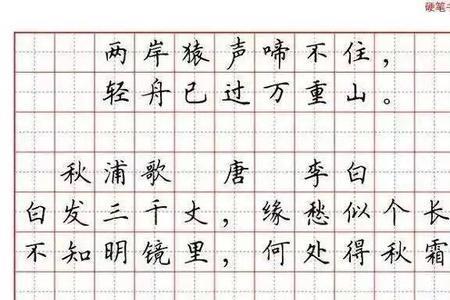 硬笔书
两岸猿声啼不住，
轻舟已过万重山。
秋浦歌 唐 李白
白发三千丈，缘愁似个长
不知明镜里，何处得秋霜